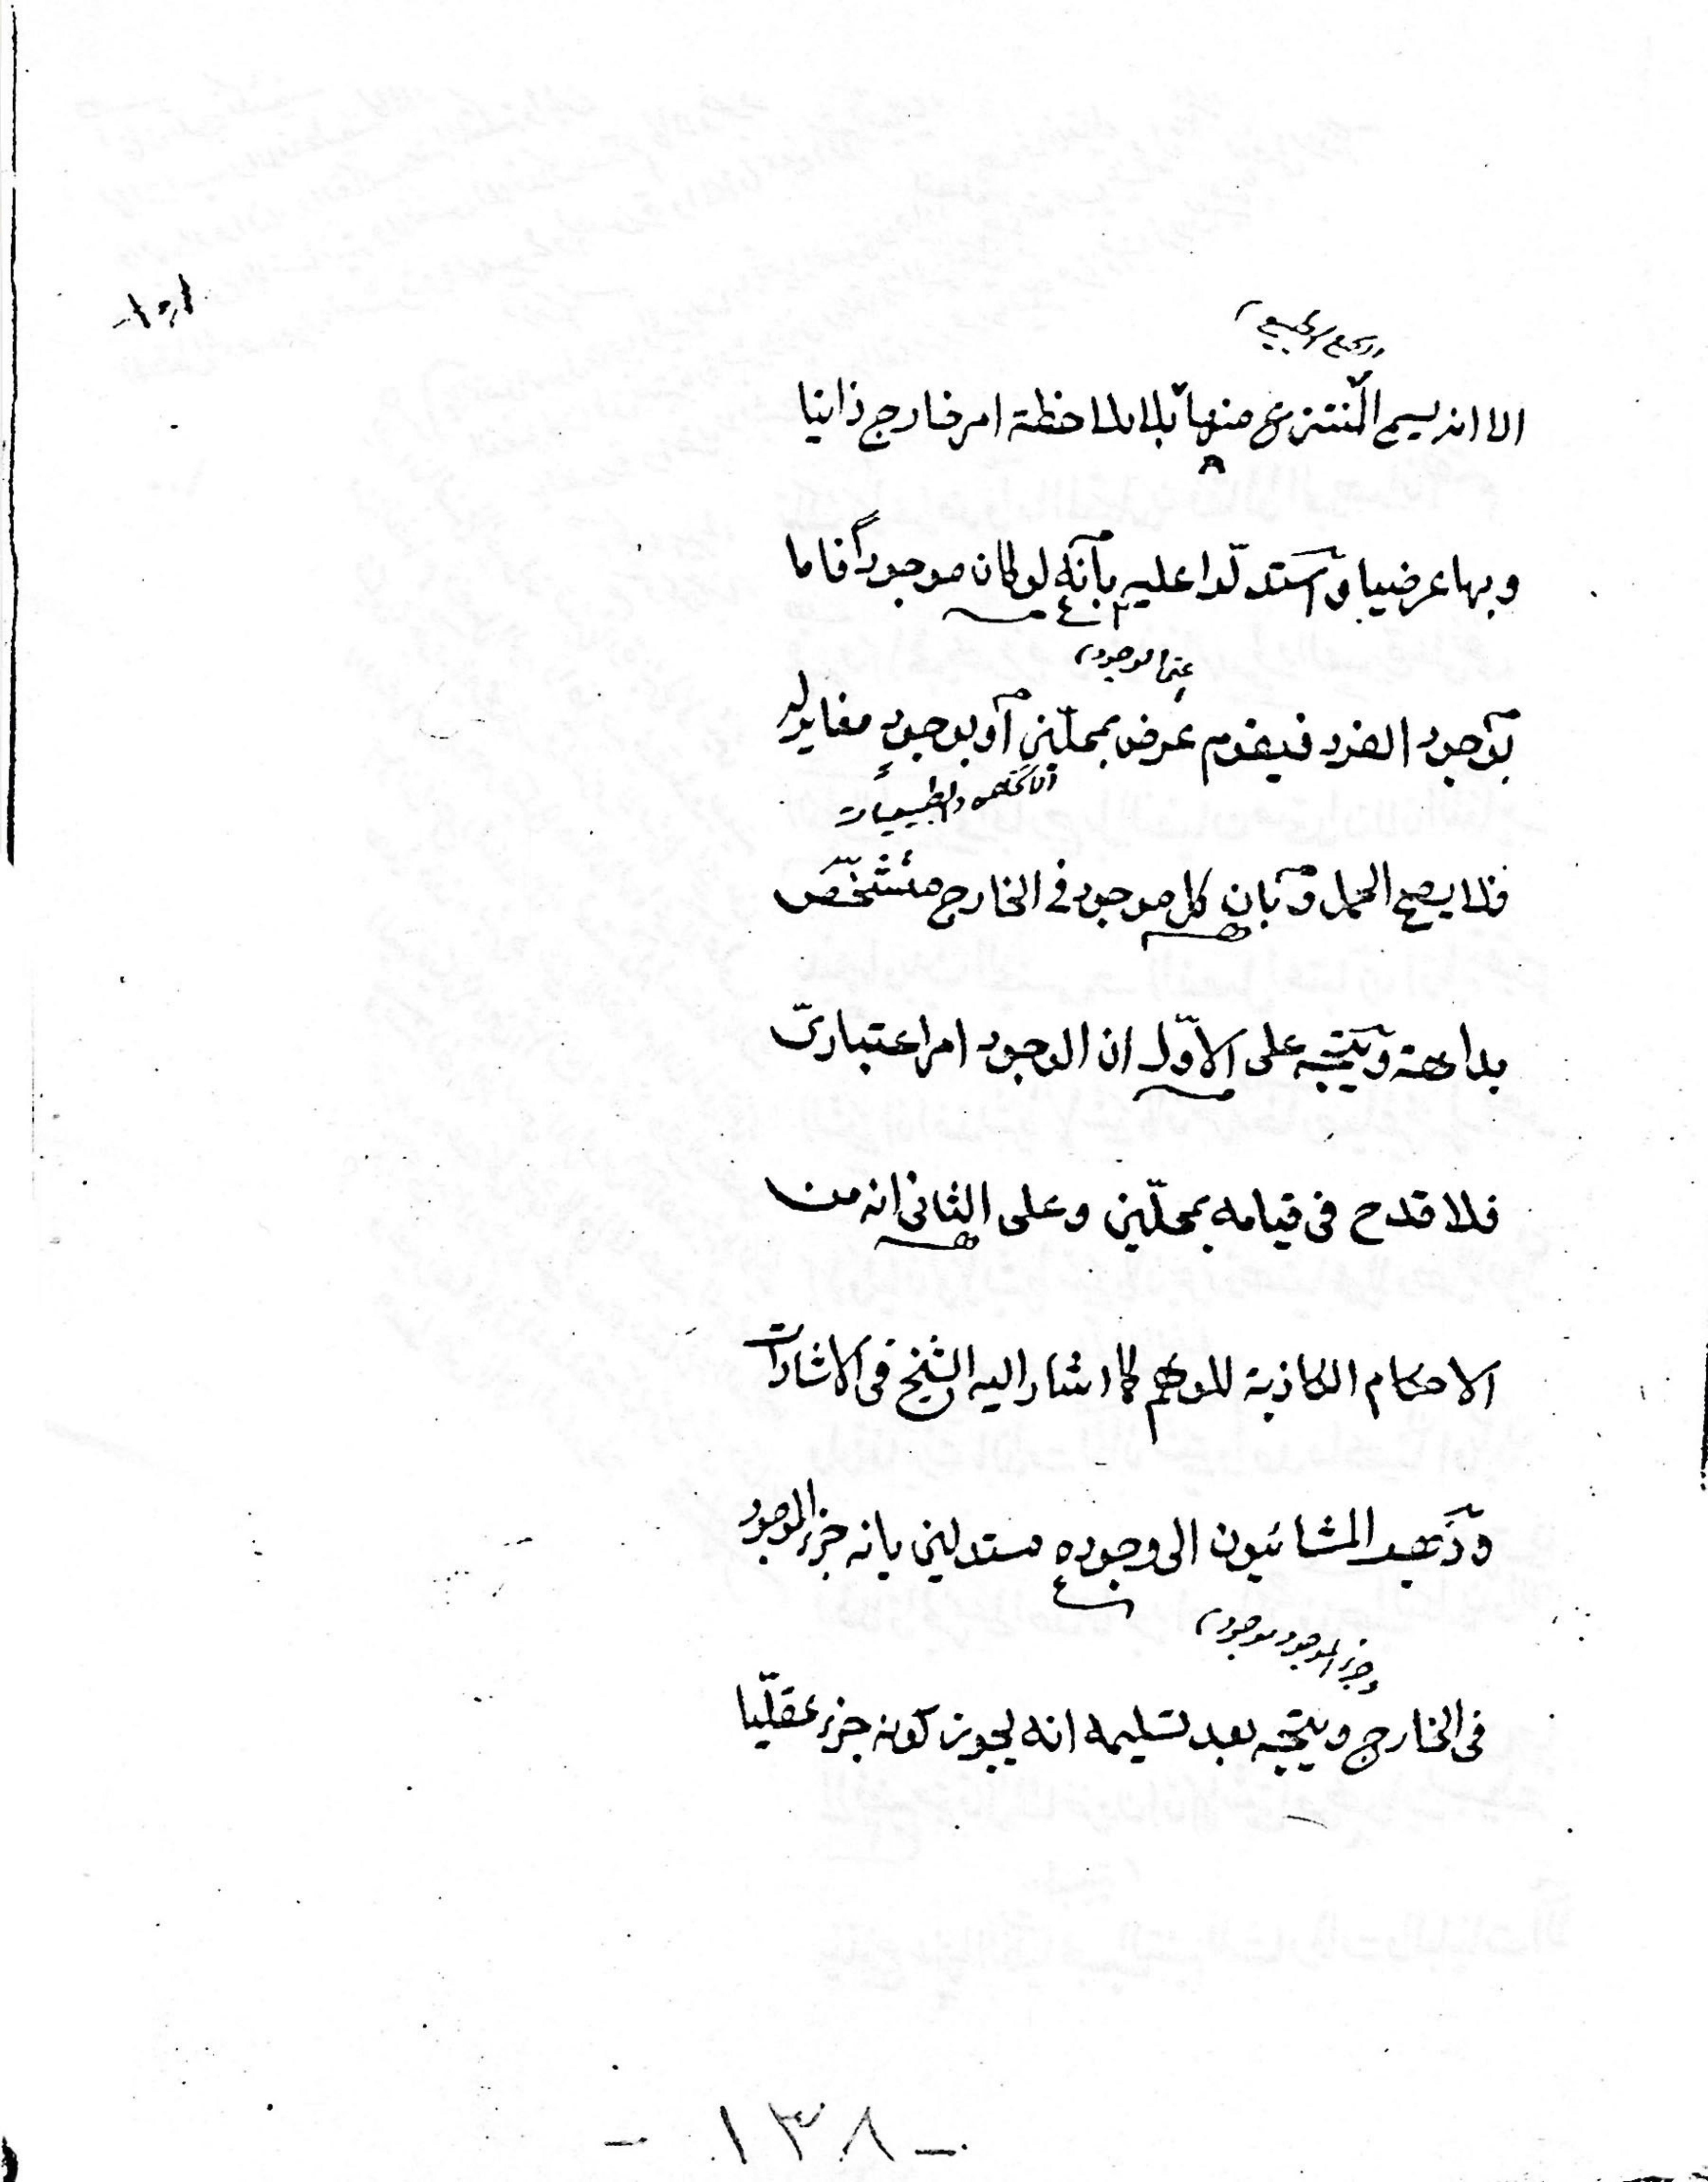 الا انه يسمى المنتزع منها بلا ملاحظة امر خارج ذاتيا
وبها عرضيا واستدلّوا عليه بأنّه لو كان موجوداً فاما
بوجود الفرد فيقوم عرض بمحلّين أو بوجودٍ مغاير له
فلا يصح الحمل وبان كل موجود في الخارج متشخّص
بداهة ويتّجه على الاوّل ان الوجود امر اعتباريّ
فلا قدح فى قيامه بمحلّين وعلى الثانى انه من
الاحكام الكاذبة للوهم كما اشار اليه الشيخ فى الاشارات
وذهب المشائيون الى وجوده مستدلين بانه جزء الموجود
وجزء الموجود موجود
فى الخارج ويتّجه بعد تسليمه انه يجوز كونه جزء عقليّا
- ١٣٨ -